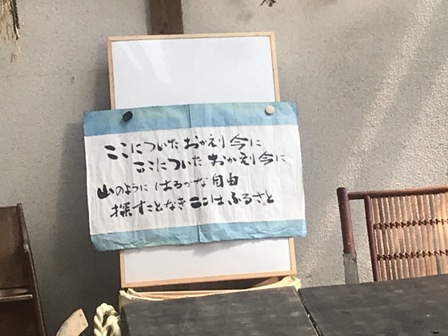 ここについた おかえり 今に
ここについた おかえり 今に
山のように はるかな 自由
探すことなき ここは ふるさと